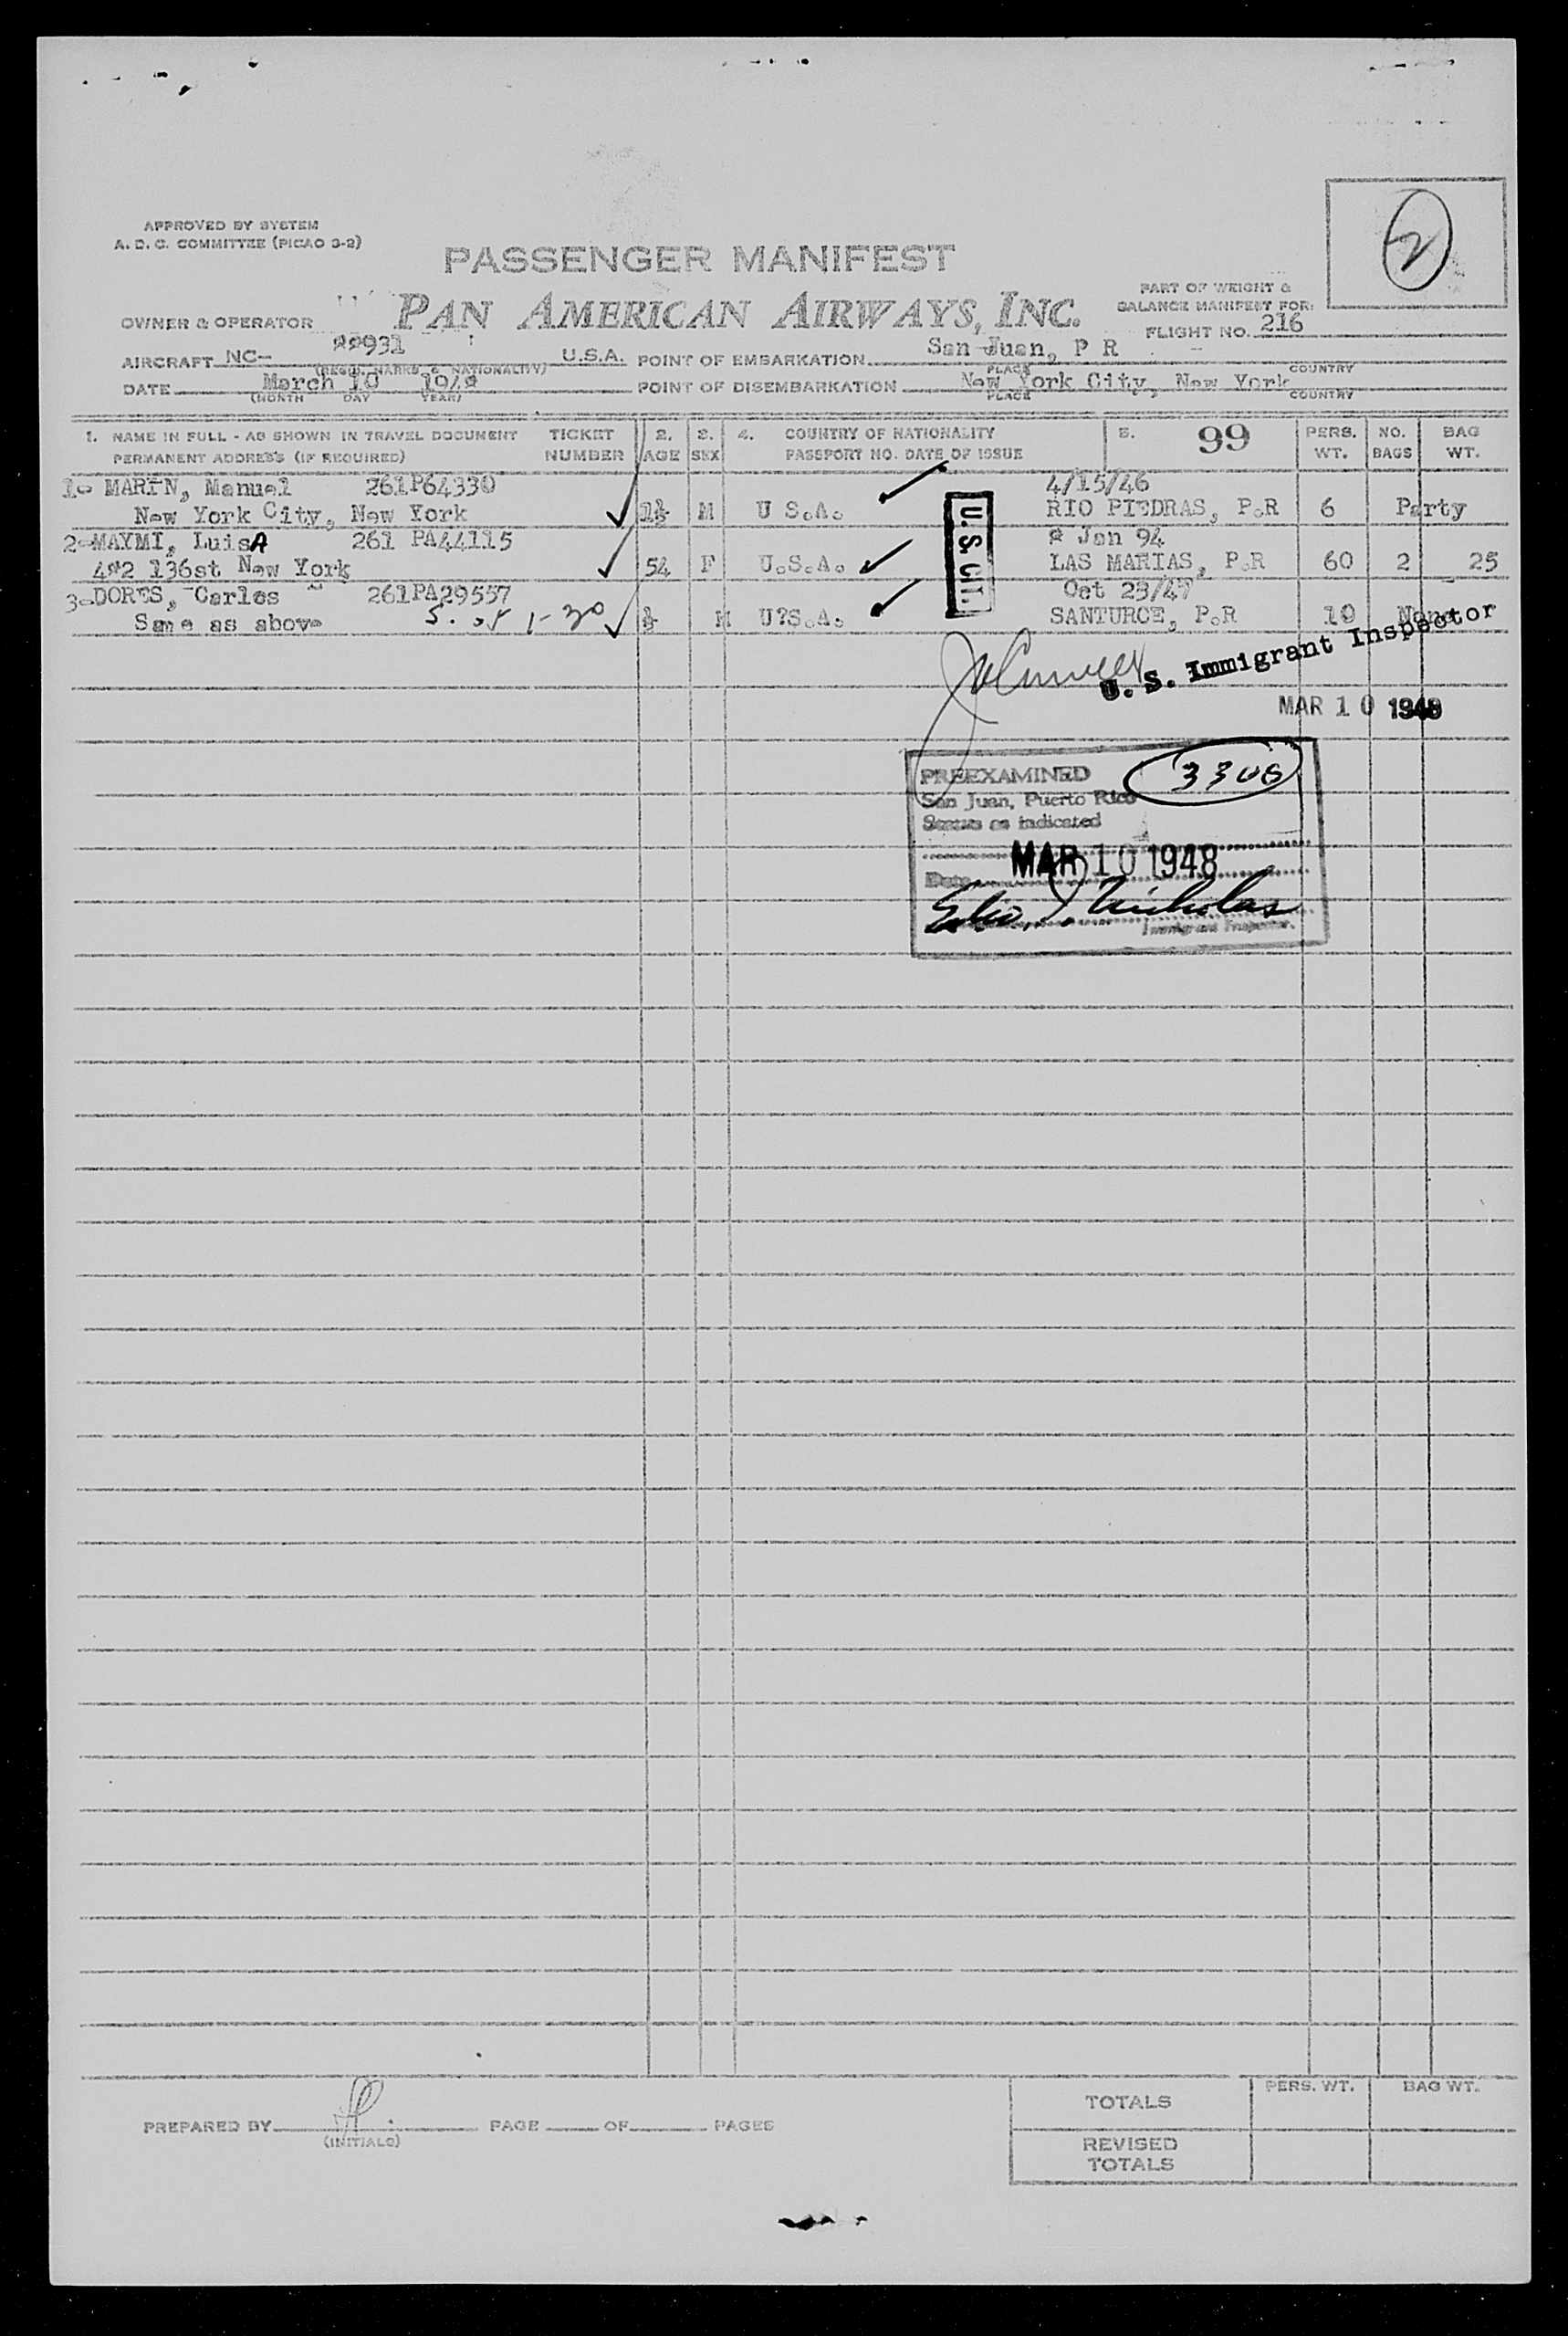 APPROVED BY SYSTEM
A. D. C. COMMITTEE (PICAO 3-2)
2
PASSENGER MANIFEST
PART OF WEIGHT &
BALANCE MANIFEST FOR:
OWNER & OPERATOR PAN AMERICAN AIRWAYS, INC.
FLIGHT NO. 216
AIRCRAFT NC- 88931 U.S.A. POINT OF EMBARKATION San Juan, P R
(REGIS. MARKS & NATIONALITY) PLACE COUNTRY
DATE March 10 1948 POINT OF DISEMBARKATION New York City, New York
(MONTH DAY YEAR) PLACE COUNTRY
1. NAME IN FULL - AS SHOWN IN TRAVEL DOCUMENT TICKET 2. 3. 4. COUNTRY OF NATIONALITY 5. 99 PERS. NO. BAG
PERMANENT ADDRESS (IF REQUIRED) NUMBER AGE SEX PASSPORT NO. DATE OF ISSUE WT. BAGS WT.
1- MARIN, Manuel 261P64330 4/15/46
New York City, New York 1½ M U S.A. RIO PIEDRAS, P.R 6 Party
2- MAYMI, LuisA 261 PA44115 8 Jan 94
482 136st New York 54 F U.S.A. LAS MARIAS, P.R 60 2 25
3- DORES, Carlos 261PA29557 Oct 23/47
Same as above M U?S.A. SANTURCE, P.R 10 None
U.S. CIT.
U. S. Immigrant Inspector
MAR 10 1948
PREEXAMINED 3306
San Juan, Puerto Rico
Status as indicated
Date MAR 10 1948
Nicholas
Immigrant Inspector.
PREPARED BY PAGE OF PAGES
(INITIALS)
TOTALS PERS. WT. BAG WT.
REVISED
TOTALS